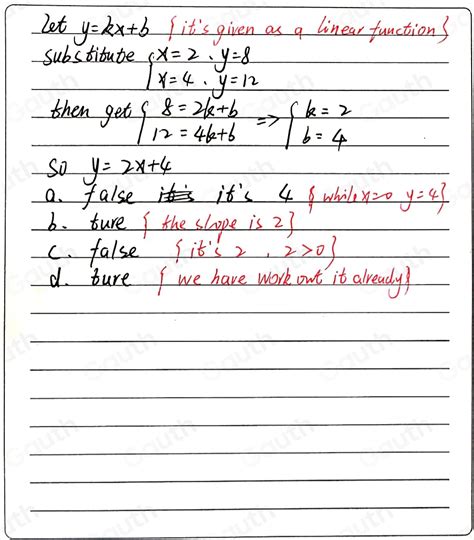 let y=kx+b {it's given as a linear function}
substitute { x=2 . y=8
x=4 . y=12
then get { 8=2k+b
12=4k+b => { k=2
b=4
So y=2x+4
a. false it is it's 4 { while x=0 y=4}
b. ture { the slope is 2}
c. false {it's 2 , 2>0}
d. ture { we have work out it already}